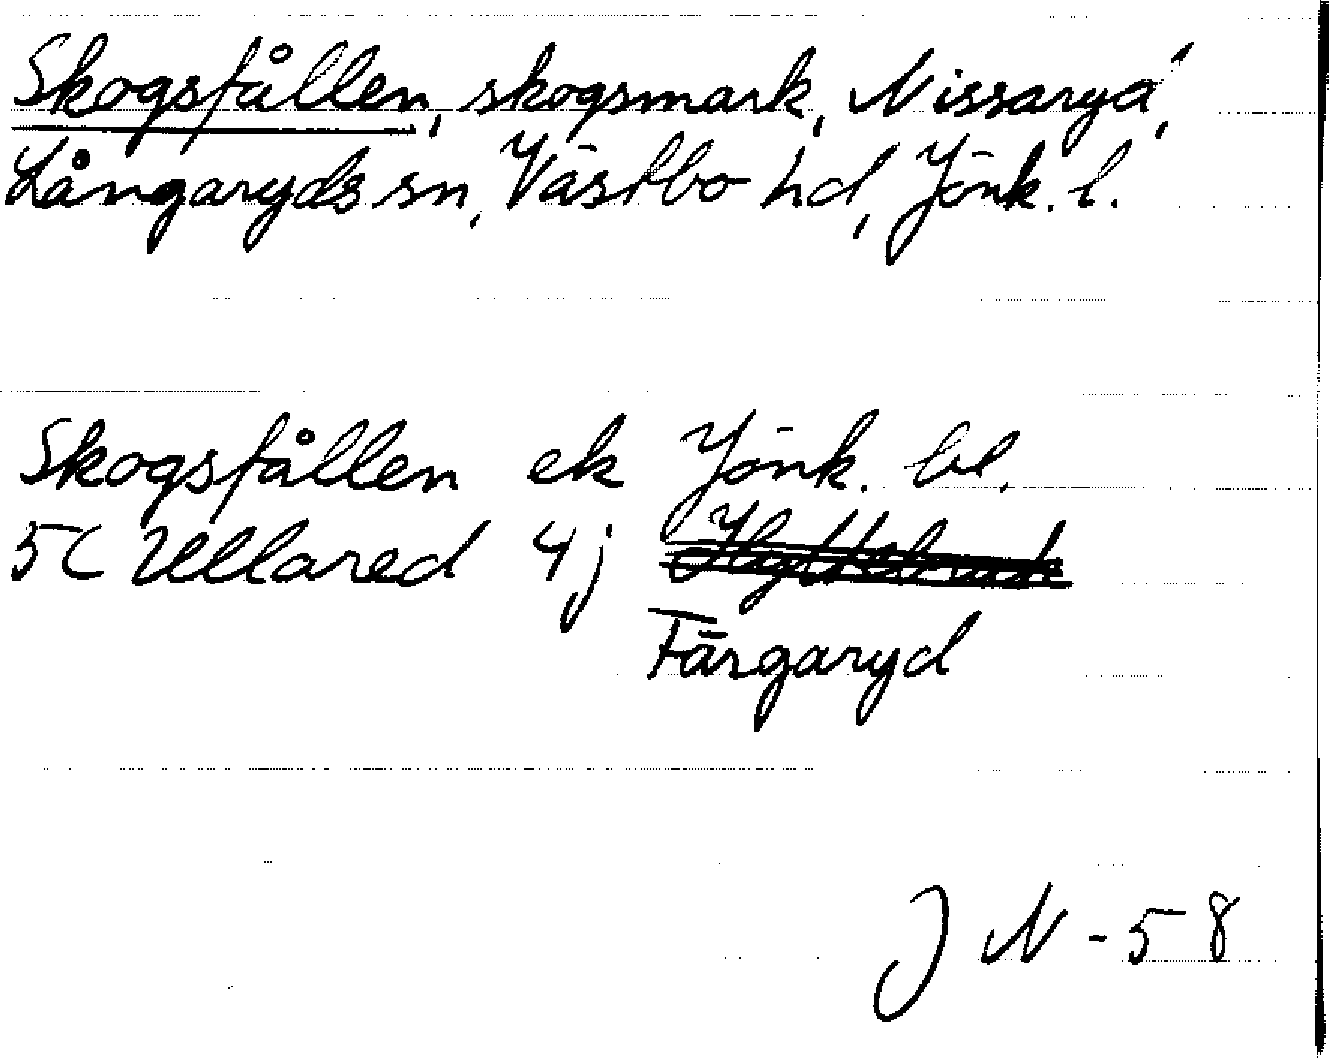 Skogsfållen, skogsmark, Nissaryd,
Långaryds sn, Västbo hd, Jönk. l.
Skogsfållen ek Jönk. bl.
5C Ullared 4j
Färgaryd
JN -58